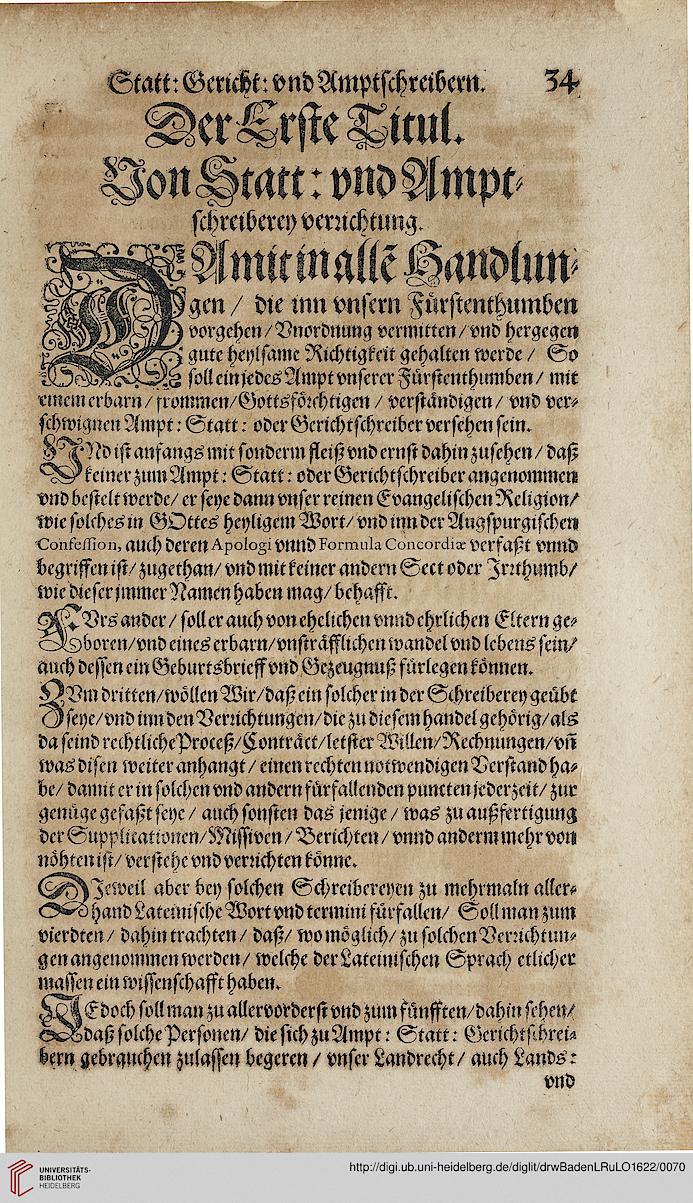 Statt: Gericht: vnd Amptschreibern. 34
Der Erste Titul.
Von Statt: vnd Ampt-
schreiberey verrichtung.
DAmit in allẽ Handlun-
gen / die inn vnsern Fürstenthumben
vorgehen / Vnordnung vermitten / vnd hergegen
gute heylsame Richtigkeit gehalten werde / So
soll ein jedes Ampt vnserer Fürstenthumben / mit
einem erbarn / frommen / Gottsförchtigen / verständigen / vnd ver-
schwignen Ampt: Statt: oder Gerichtschreiber versehen sein.
VNd ist anfangs mit sonderm fleiß vnd ernst dahin zusehen / daß
keiner zum Ampt: Statt: oder Gerichtschreiber angenommen
vnd bestelt werde / er seye dann vnser reinen Evangelischen Religion /
wie solches in GOttes heyligem Wort / vnd inn der Augspurgischen
Confession, auch deren Apologi vnnd Formula Concordiæ verfaßt vnnd
begriffen ist / zugethan / vnd mit keiner andern Sect oder Irrthumb /
wie dieser jmmer Namen haben mag / behafft.
FVrs ander / soll er auch von ehelichen vnnd ehrlichen Eltern ge-
boren / vnd eines erbarn / vnsträfflichen wandel vnd lebens sein /
auch dessen ein Geburtsbrieff vnd Gezeugnuß fürlegen können.
ZVm dritten / wöllen Wir / daß ein solcher in der Schreiberey geübt
seye / vnd inn den Verrichtungen / die zu diesem handel gehörig / als
da seind rechtliche Proceß / Contráct / letster Willen / Rechnungen / vñ
was disen weiter anhangt / einen rechten notwendigen Verstand ha-
be / damit er in solchen vnd andern fürfallenden puncten jederzeit / zur
genüge gefaßt seye / auch sonsten das jenige / was zu außfertigung
der Supplicationen / Missiven / Berichten / vnnd anderm mehr von
nöhten ist / verstehe vnd verrichten könne.
DJeweil aber bey solchen Schreibereyen zu mehrmaln aller-
hand Lateinische Wort vnd termini fürfallen / Soll man zum
vierdten / dahin trachten / daß / wo möglich / zu solchen Verrichtun-
gen angenommen werden / welche der Lateinischen Sprach etlicher
massen ein wissenschafft haben.
JEdoch soll man zu allervorderst vnd zum fünfften / dahin sehen /
daß solche Personen / die sich zu Ampt: Statt: Gerichtschrei-
bern gebrauchen zulassen begeren / vnser Landrecht / auch Lands:
vnd
UNIVERSITÄTS-
BIBLIOTHEK
HEIDELBERG
http://digi.ub.uni-heidelberg.de/diglit/drwBadenLRuLO1622/0070